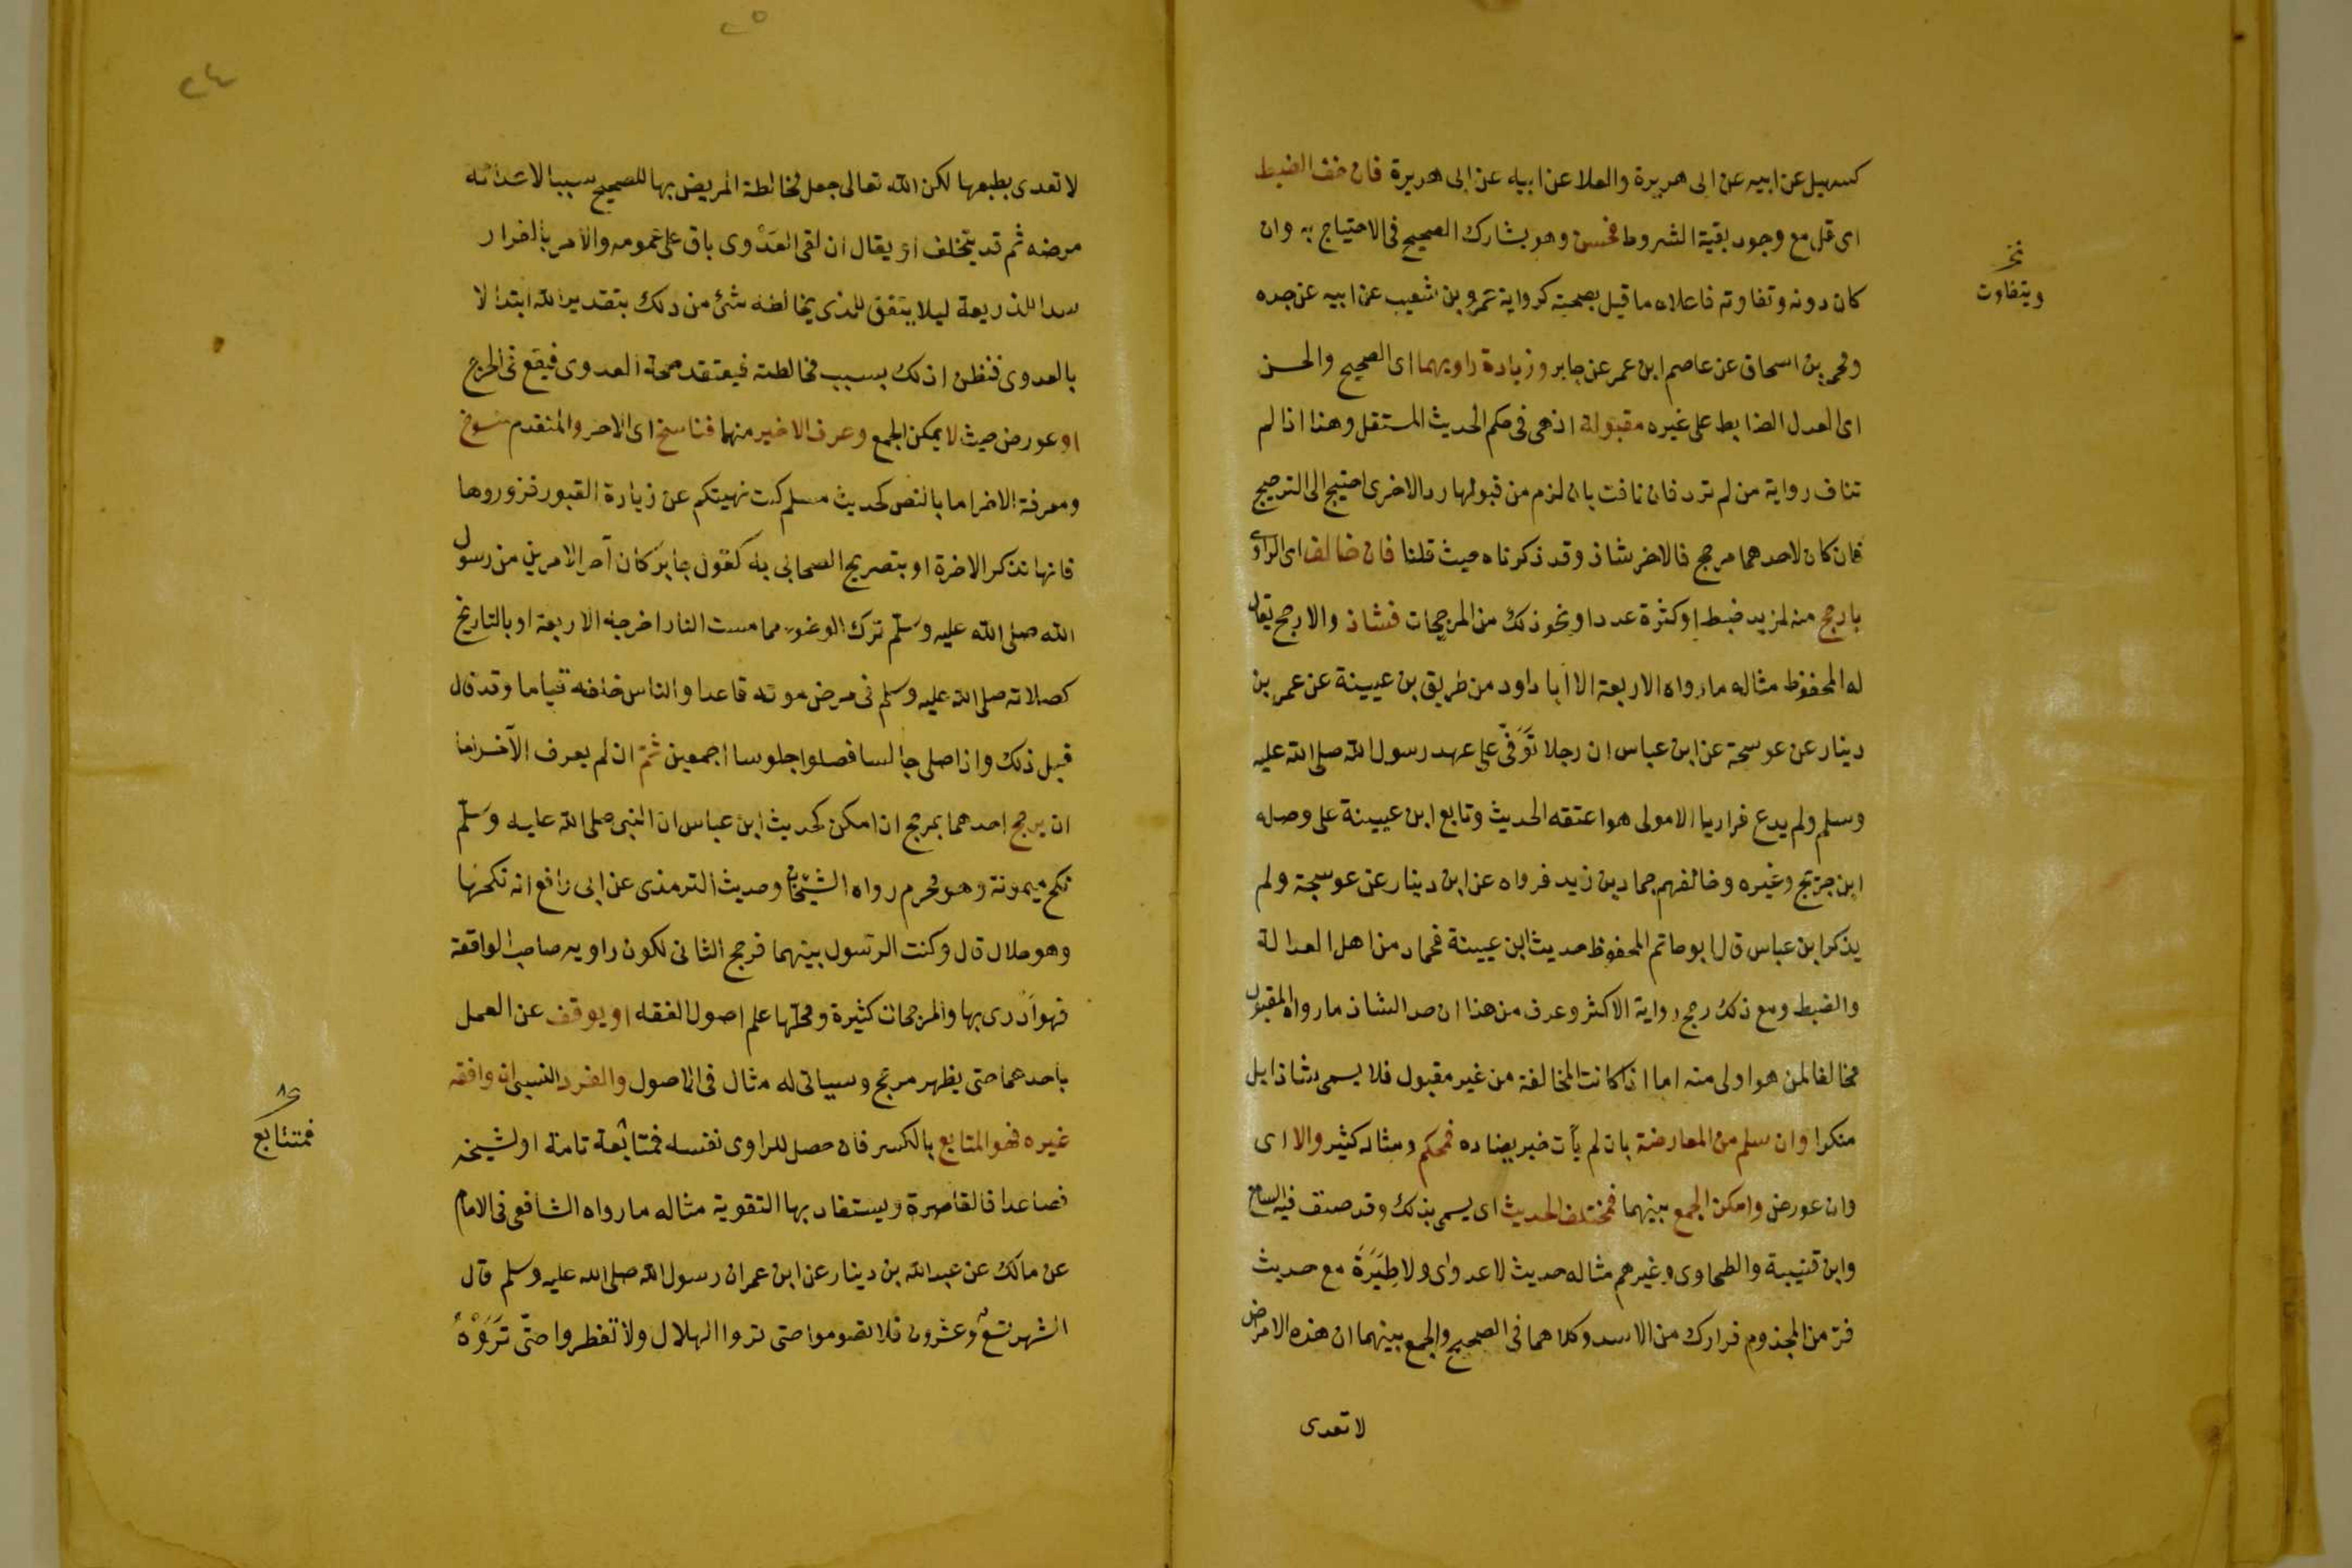 كسهيل عن ابيه عن ابى هريرة والعلا عن ابيه عن ابى هريرة فان خف الضبط
اى قل مع وجود بقية الشروط فحسن وهو يشارك الصحيح فى الاحتياج به وان
كان دونه وتفاوته فاعلاه ما قيل بصحته كرواية عمرو بن شعيب عن ابيه عن جده
ومحمد بن اسحاق عن عاصم ابن عمر عن جابر وزيادة راويهما اى الصحيح والحسن
اى العدل الضابط على غيره مقبولة اذ هى فى حكم الحديث المستقل وهذا اذا لم
تناف رواية من لم ترد فان نافت بان لزم من قبولها رد الاخرى احتيج الى الترجيح
فان كان لاحدهما مرجح فالاخر شاذ وقد ذكرناه حيث قلنا فان خالف اى الراوى
بارجح منه لمزيد ضبط او كثرة عددا ونحو ذلك من المرجحات فشاذ والارجح يقال
له المحفوظ مثاله ما رواه الاربعة الا ابا داود من طريق بن عيينة عن عمر بن
دينار عن عوسجة عن ابن عباس ان رجلا توفى على عهد رسول الله صلى الله عليه
وسلم ولم يدع فراريا الا مولى هو اعتقه الحديث وتابع ابن عيينة على وصله
ابن جريج وغيره وخالفهم حماد بن زيد فرواه عن ابن دينار عن عوسجة ولم
يذكر ابن عباس قال ابو حاتم المحفوظ حديث ابن عيينة فحماد من اهل العدالة
والضبط ومع ذلك رجح رواية الاكثر وعرف من هذا ان حد الشاذ ما رواه المقبول
مخالفا لمن هو اولى منه اما اذا كانت المخالفة من غير مقبول فلا يسمى شاذا بل
منكرا وان سلم من المعارضة بان لم يأت خبر يضاده فمحكم ومثاله كثير والا اى
وان عورض وامكن الجمع بينهما فمختلف الحديث اى يسمى بذلك وقد صنف فيه
وابن قتيبة والطحاوى وغيرهم مثاله حديث لا عدوى ولا طِيَرَةَ مع حديث
فر من المجذوم فرارك من الاسد وكلاهما فى الصحيح والجمع بينهما ان هذه الامراض
لا تعدى
ويتفاوت
٢٤
٢٥
لا تعدى بطبعها لكن الله تعالى جعل مخالطة المريض بها للصحيح سببا لاعدائه
مرضه ثم قد يتخلف او يقال ان لقى العدوى باق على عمومه والامر بالفرار
سدا للذريعة ليلا يتفق للذى يخالطه شئ من ذلك بتقدير الله ابتدا لا
بالعدوى فنظن ان ذلك بسبب مخالطته فيعتقد صحة العدوى فيقع فى الحرج
او عورض حيث لا يمكن الجمع وعرف الاخير منهما فناسخ اى الاخر والمتقدم منسوخ
ومعرفة الاخر اما بالنص كحديث مسلم كنت نهيتكم عن زيارة القبور فزوروها
فانها تذكر الاخرة او بتصريح الصحابى به كقول جابر كان آخر الامرين من رسول
الله صلى الله عليه وسلم ترك الوضوء مما مست النار اخرجه الاربعة او بالتاريخ
كصلاته صلى الله عليه وسلم فى مرض موته قاعدا والناس خلفه قياما وقد قال
قبل ذلك واذا صلى جالسا فصلوا جلوسا اجمعين ثم ان لم يعرف الآخر اما
ان يرجح احدهما بمرجح ان امكن كحديث ابن عباس ان النبى صلى الله عليه وسلم
نكح ميمونة وهو محرم رواه الشيخان وحديث الترمذى عن ابى رافع انه نكحها
وهو حلال قال وكنت الرسول بينهما فرجح الثانى لكون راويه صاحب الواقعة
فهو ادرى بها والمرجحات كثيرة ومحلها علم اصول الفقه او يوقف عن العمل
باحدهما حتى يظهر مرجح وسياتى له مثال فى الاصول والفرد النسبى ان وافقه
غيره فهو المتابع بالكسر فان حصل للراوى نفسه فمتابعة تامة او لشيخه
فصاعدا فالقاصرة ويستفاد بها التقوية مثاله ما رواه الشافعى فى الام
عن مالك عن عبد الله بن دينار عن ابن عمر ان رسول الله صلى الله عليه وسلم قال
الشهر تسع وعشرون فلا تصوموا حتى تروا الهلال ولا تفطروا حتى تَرَوْهُ
فمتتابع